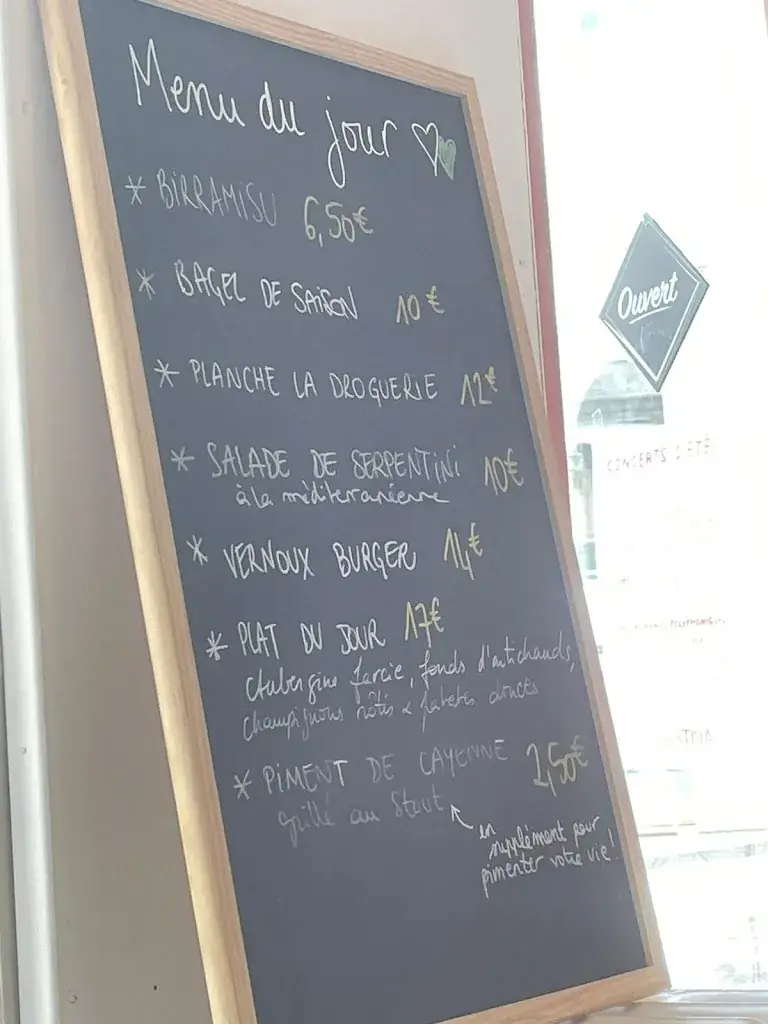 Menu du jour
* BIRRAMISU 6,50€
* BAGEL DE SAISON 10€
* PLANCHE LA DROGUERIE 12€
* SALADE DE SERPENTINI 10€
à la méditerranéenne
* VERNOUX BURGER 14€
* PLAT DU JOUR 17€
Aubergine farcie, fonds d'artichauds,
champignons rôtis & patates douces
* PIMENT DE CAYENNE 2,50€
grillé au Stout
en
supplément pour
pimenter votre vie!
Ouvert
CONCERTS D'ÉTÉ